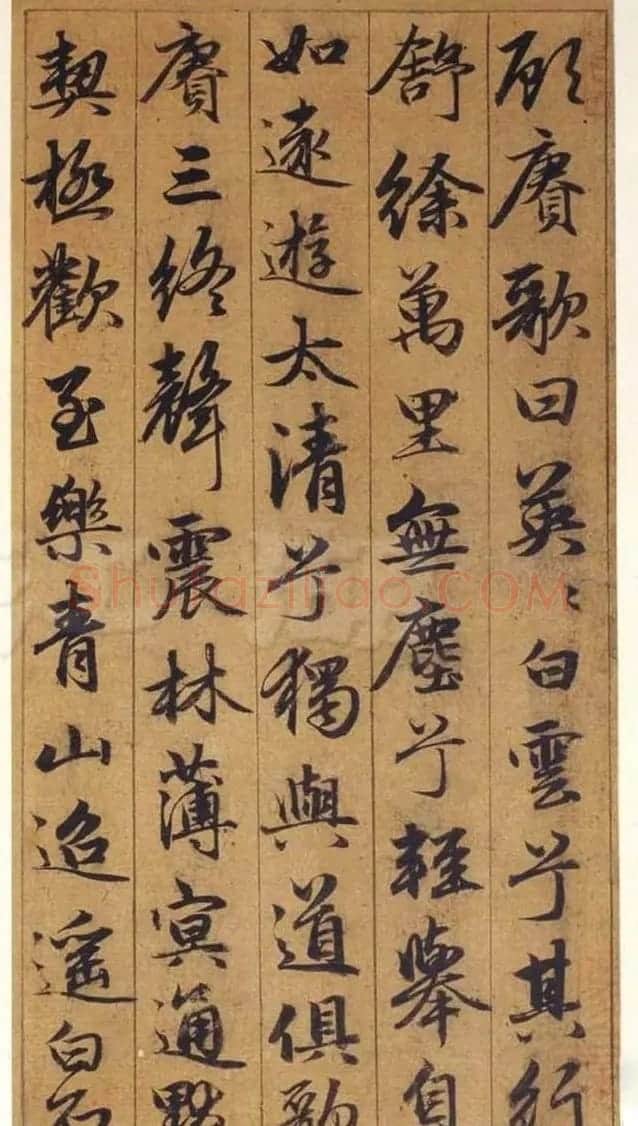 顾賡歌曰英〻白雲兮其行
舒徐萬里無塵兮輕舉自
如遠遊太清兮獨與道俱歌
賡三終聲震林薄冥通默
契極歡至樂青山迢遥白石
shufaziliao.COM